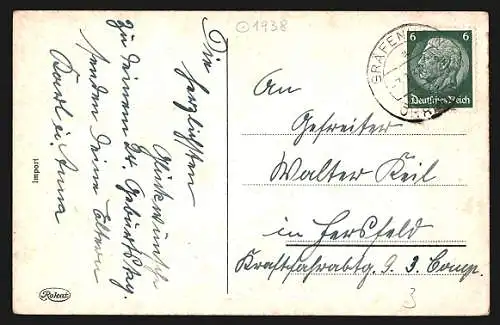 1938
Die herzlichsten
Glückwünsche
zu deinem 24. Geburtstag.
senden deine Eltern
Karl u. Anna
Import
Rotex
GRÄFEN
6 6
Deutsches Reich
An
Gefreiter
Walter Keil
in Hersfeld
Kraftfahrabtg. 9 3 Comp.
3